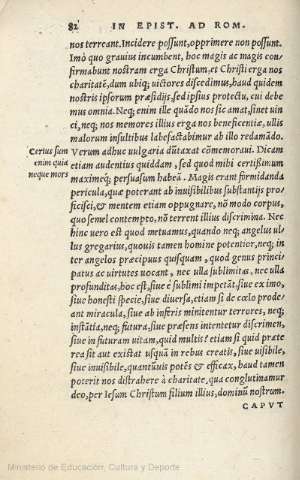 82 IN EPIST. AD ROM.
nos terreant. Incidere possunt, opprimere non possunt.
Imò quo grauius incumbent, hoc magis ac magis con-
firmabunt nostram erga Christum, et Christi erga nos
charitatē, dum ubiq; uictores discedimus, haud quidem
nostris ipsorum præsidijs, sed ipsius protectu, cui debe
mus omnia. Neq; enim ille quādo nos sic amat, sinet uin
ci, neq; nos memores illius erga nos beneficētiæ, ullis
malorum insultibus labefactabimur ab illo redamādo.
Certus sum
enim quia
neque mors
Verum adhuc uulgaria dūtaxat cōmemoraui. Dicam
etiam audentius quiddam, sed quod mihi certißimum
maximeq; persuasum habeā. Magis erant formidanda
pericula, quæ poterant ab inuisibilibus substantijs pro
ficisci, & mentem etiam oppugnare, nō modo corpus,
quo semel contempto, nō terrent illius discrimina. Nec
hinc uero est quod metuamus, quando neq; angelus ul-
lus gregarius, quouis tamen homine potentior, neq; in
ter angelos præcipuus quisquam, quod genus princi
patus ac uirtutes uocant, nec ulla sublimitas, nec ulla
profunditas, hoc est, siue è sublimi impetāt, siue ex imo,
siue honesti specie, siue diuersa, etiam si de cœlo prode-
ant miracula, siue ab inferis minitentur terrores, neq;
instātia, neq; futura, siue præsens intentetur discrimen,
siue in futuram uitam, quid multis? etiam si quid præte
rea sit aut existat usquā in rebus creatis, siue uisibile,
siue inuisibile, quantūuis potēs & efficax, haud tamen
poterit nos distrahere à charitate, qua conglutinamur
deo, per Iesum Christum filium illius, dominū nostrum.
CAPVT
Ministerio de Educación, Cultura y Deporte